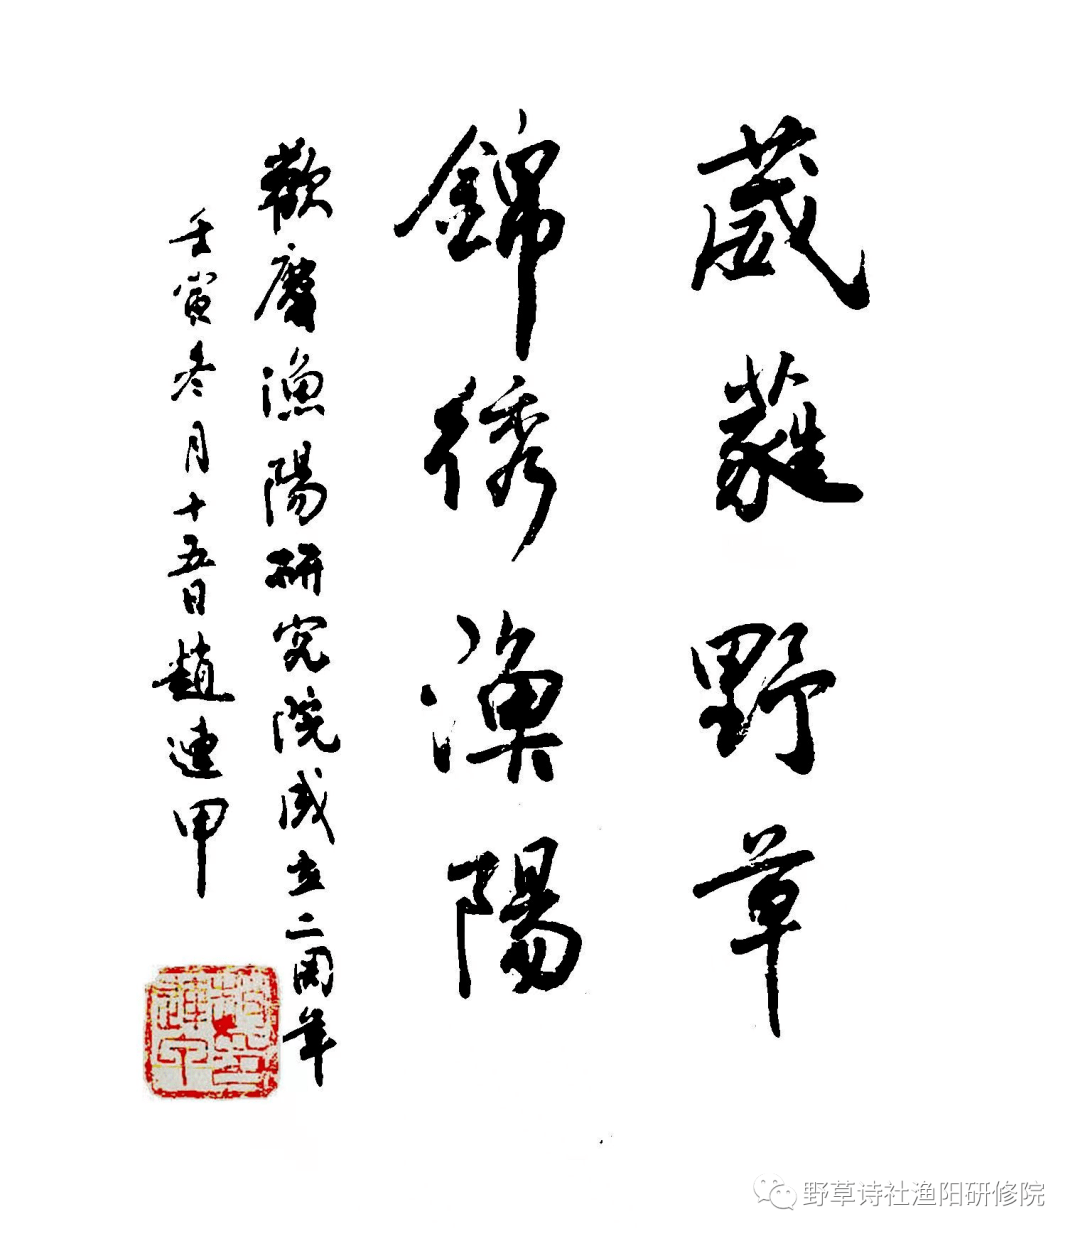 葳蕤野草
錦綉漁陽
歡慶漁陽研究院成立二周年
壬寅冬月十五日趙連甲
野草诗社渔阳研修院